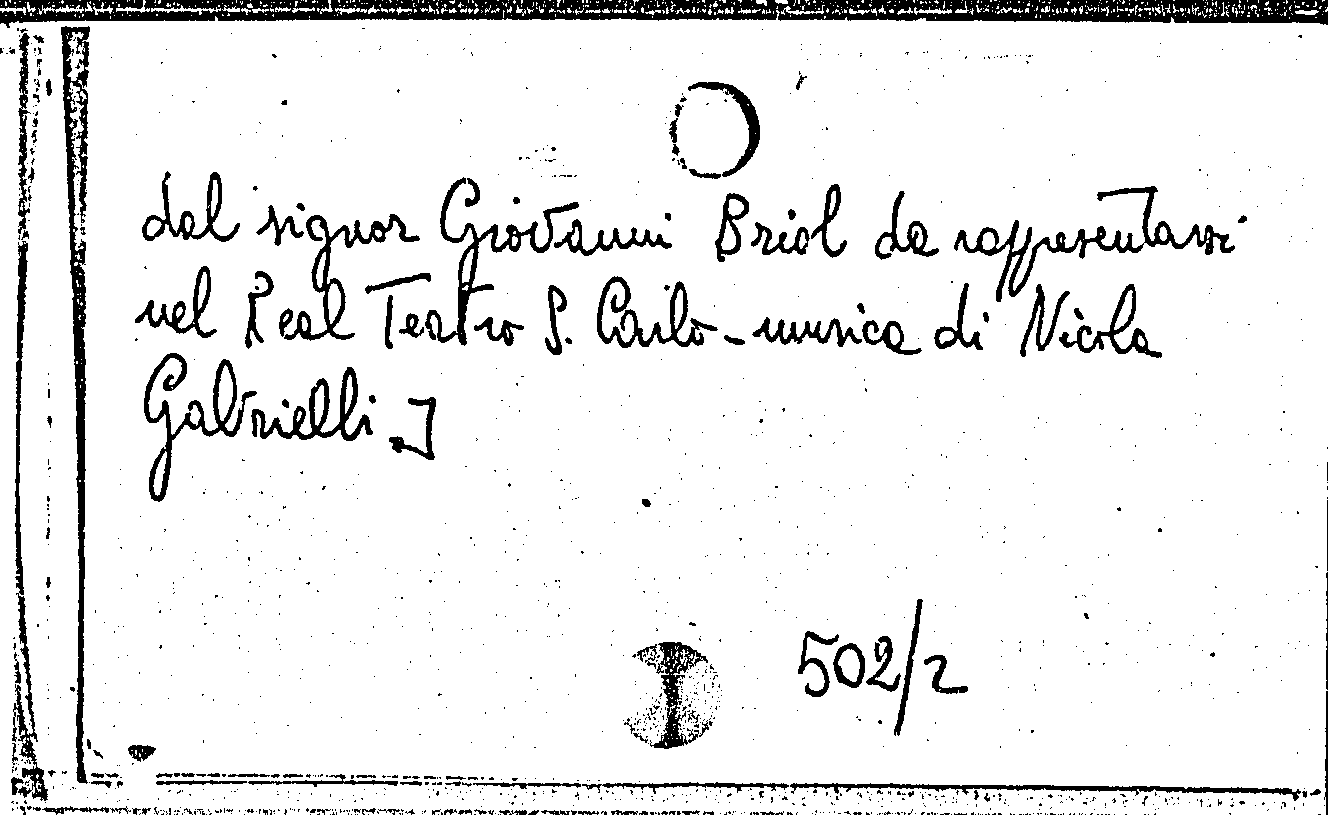 dal signor Giovanni Briol da rappresentarsi
nel Real Teatro S. Carlo - musica di Nicola
Gabrielli.]
502/2